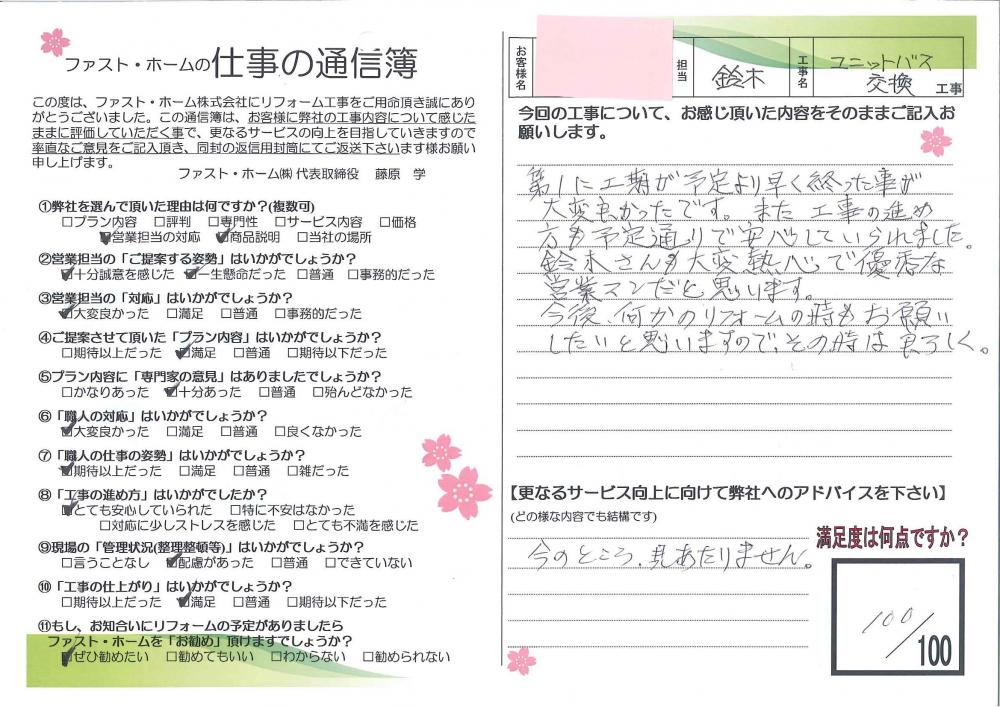 ファスト・ホームの仕事の通信簿
この度は、ファスト・ホーム株式会社にリフォーム工事をご用命頂き誠にあり
がとうございました。この通信簿は、お客様に弊社の工事内容について感じた
ままに評価していただく事で、更なるサービスの向上を目指していきますので
率直なご意見をご記入頂き、同封の返信用封筒にてご返送下さいます様お願い
申し上げます。
ファスト・ホーム㈱ 代表取締役 藤原 学
①弊社を選んで頂いた理由は何ですか?(複数可)
□プラン内容 □評判 □専門性 □サービス内容 □価格
☑営業担当の対応 ☑商品説明 □当社の場所
②営業担当の「ご提案する姿勢」はいかがでしょうか?
☑十分誠意を感じた ☑一生懸命だった □普通 □事務的だった
③営業担当の「対応」はいかがでしょうか?
☑大変良かった □満足 □普通 □事務的だった
④ご提案させて頂いた「プラン内容」はいかがでしょうか?
□期待以上だった ☑満足 □普通 □期待以下だった
⑤プラン内容に「専門家の意見」はありましたでしょうか?
□かなりあった ☑十分あった □普通 □殆んどなかった
⑥「職人の対応」はいかがでしょうか?
☑大変良かった □満足 □普通 □良くなかった
⑦「職人の仕事の姿勢」はいかがでしょうか?
☑期待以上だった □満足 □普通 □雑だった
⑧「工事の進め方」はいかがでしたか?
☑とても安心していられた □特に不安はなかった
□対応に少しストレスを感じた □とても不満を感じた
⑨現場の「管理状況(整理整頓等)」はいかがでしょうか?
□言うことなし ☑配慮があった □普通 □できていない
⑩「工事の仕上がり」はいかがでしょうか?
□期待以上だった ☑満足 □普通 □期待以下だった
⑪もし、お知合いにリフォームの予定がありましたら
ファスト・ホームを「お勧め」頂けますでしょうか?
☑ぜひ勧めたい □勧めてもいい □わからない □勧められない
お客様名 担当 鈴木 工事名 ユニットバス
交換 工事
今回の工事について、お感じ頂いた内容をそのままご記入お
願いします。
第1に工期が予定より早く終った事が
大変良かったです。また工事の進め
方も予定通りで安心していられました。
鈴木さんも大変熱心で優秀な
営業マンだと思います。
今後、何かのリフォームの時もお願い
したいと思いますので、その時は良ろしく。
【更なるサービス向上に向けて弊社へのアドバイスを下さい】
(どの様な内容でも結構です)
満足度は何点ですか?
今のところ、見あたりません。
100/100